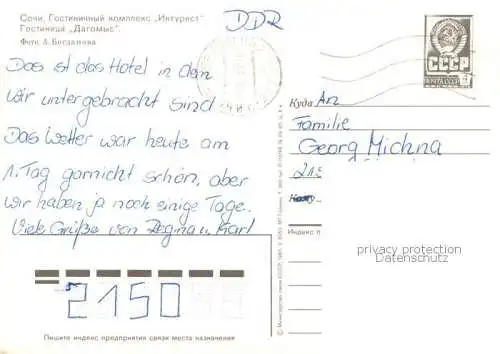 Сочи. Гостиничный комплекс „Интурист"
Гостиница „Дагомыс".
Фото А. Богданова
DDR
Das ist das Hotel in dem
wir untergebracht sind
Das Wetter war heute am
1. Tag garnicht schön, aber
wir haben ja noch einige Tage.
Viele Grüße von Regina u. Karl
СССР
ПОЧТА СССР
Куда An
Familie
Georg Michna
215
Кому
Индекс п
privacy protection
Datenschutz
2150
Пишите индекс предприятия связи места назначения